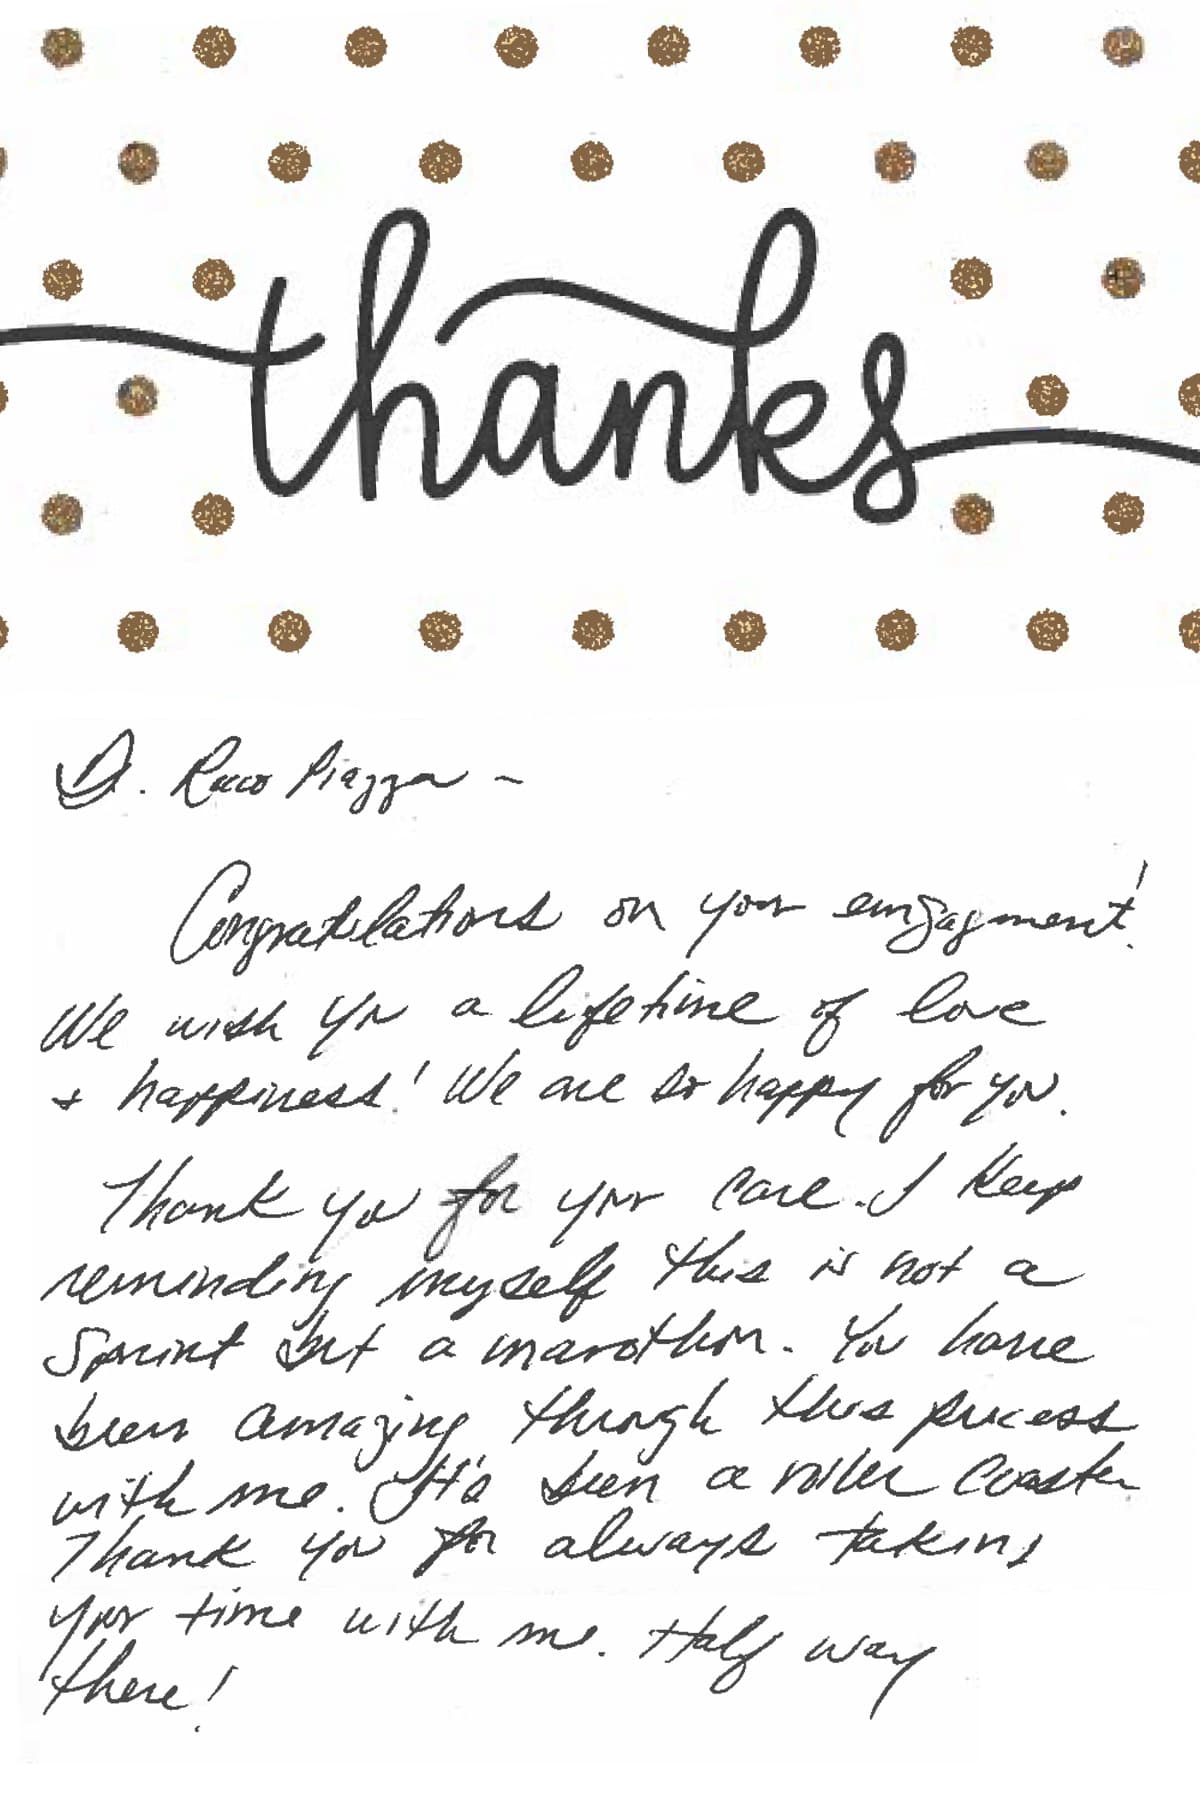 thanks
D. Rocco Piazza ~
Congratulations on your engagment!
We wish you a lifetime of love
+ happiness! We are so happy for you.
Thank you for your care. I keep
reminding myself this is not a
Sprint but a marathon. You have
been amazing through this process
with me. It's been a roller coaster
Thank you for always taking
your time with me. Half way
there!